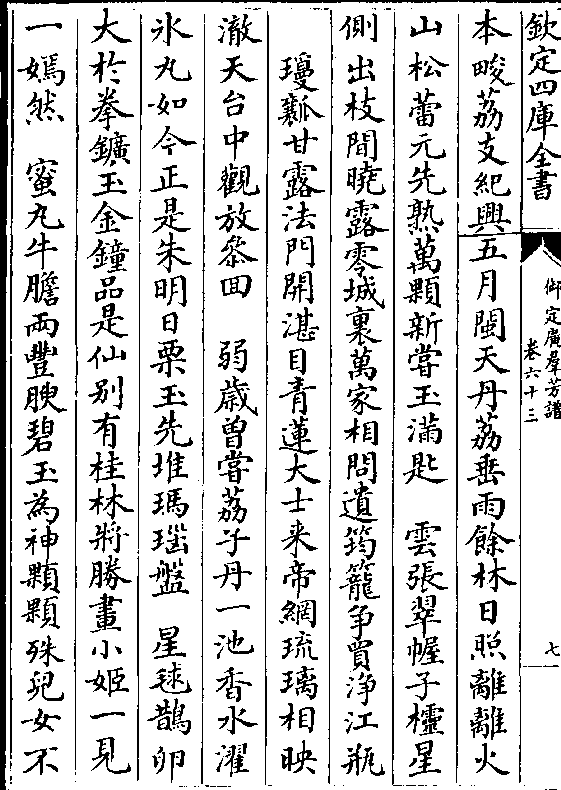 欽定四庫全書
御定廣羣芳譜
卷六十三
七
本畯荔支紀興五月閩天丹荔垂雨餘林日照離離火
山松蕾元先熟萬顆新嘗玉滿匙　雲張翠幄子櫺星
側出枝間曉露零城裏萬家相問遺筠籠爭買淨江瓶
瓊瓤甘露法門開湛目青蓮大士来帝網琉璃相映
澈天台中觀放叅囬　弱歳曽嘗荔子丹一池香水濯
氷丸如今正是朱明日栗玉先堆瑪瑙盤　星毬鵲卵
大於拳鑛玉金鐘品是仙别有桂林將勝畫小姬一見
一嫣然　蜜丸牛膽兩豐腴碧玉為神顆顆殊兒女不